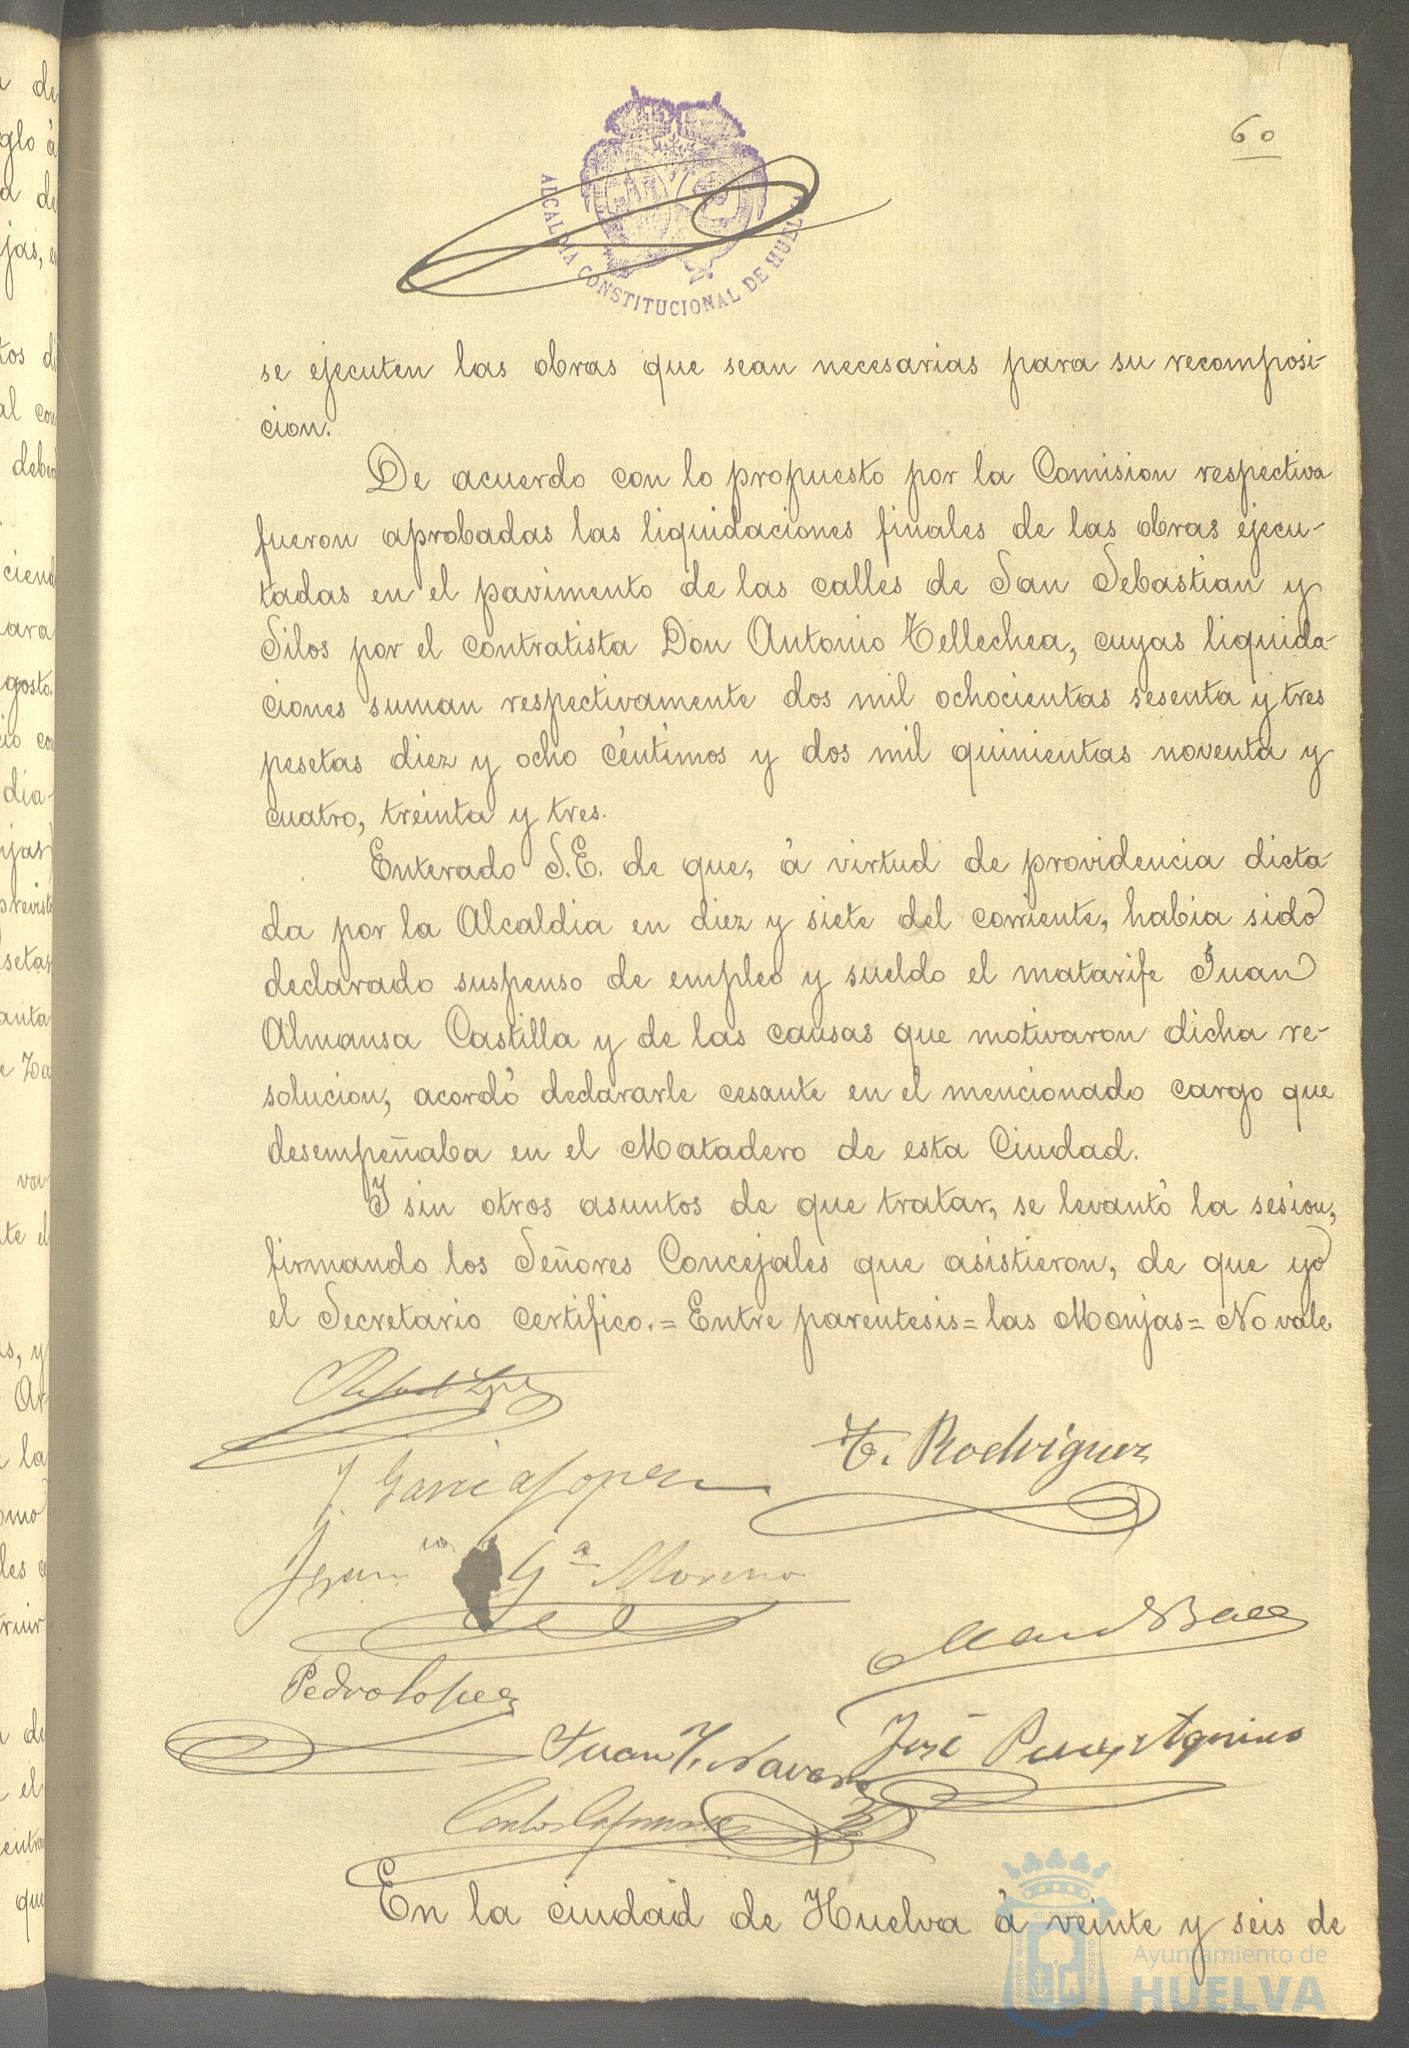 60
ALCALDIA CONSTITUCIONAL DE HUELVA
se ejecuten las obras que sean necesarias para su recomposi-
cion.
De acuerdo con lo propuesto por la Comision respectiva
fueron aprobadas las liquidaciones finales de las obras ejecu-
tadas en el pavimento de las calles de San Sebastian y
Silos por el contratista Don Antonio Tellechea, cuyas liquida-
ciones suman respectivamente dos mil ochocientas sesenta y tres
pesetas diez y ocho céntimos y dos mil quinientas noventa y
cuatro, treinta y tres.
Enterado S.E. de que, à virtud de providencia dicta-
da por la Alcaldia en diez y siete del corriente, habia sido
declarado suspenso de empleo y sueldo el matarife Juan
Almansa Castilla y de las causas que motivaron dicha re-
solucion, acordó declararle cesante en el mencionado cargo que
desempeñaba en el Matadero de esta Ciudad.
Y sin otros asuntos de que tratar, se levantó la sesion,
firmando los Señores Concejales que asistieron, de que yo
el Secretario certifico.=Entre parentesis=las Monjas=No vale
T. Rodriguez
J. Garcia Lopez
Gª Moreno
Pedro Lopez
Juan Navarro
José
En la ciudad de Huelva à veinte y seis de
Ayuntamiento de
HUELVA